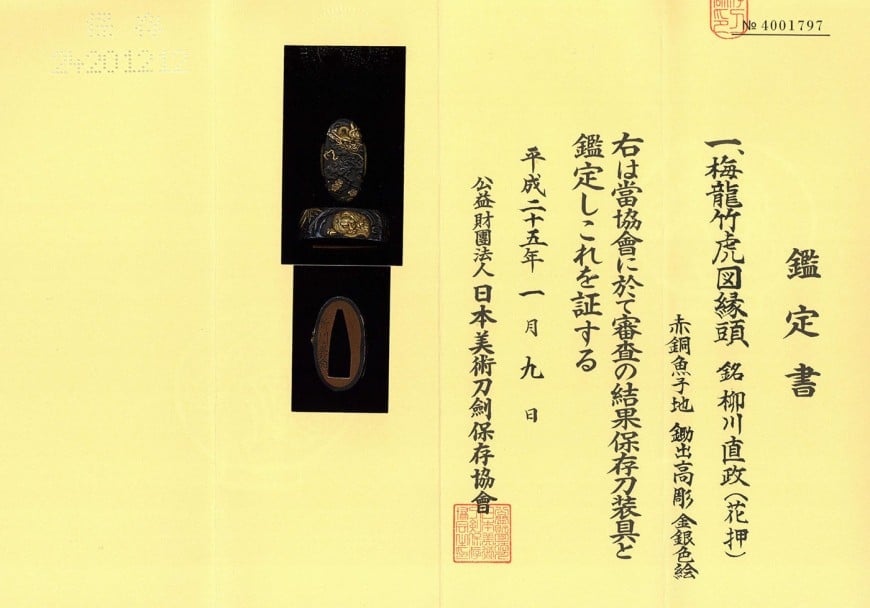 № 4001797
鑑定書
一、梅龍竹虎図縁頭 銘 柳川直政(花押)
赤銅魚子地 鋤出高彫 金銀色絵
右は當協會に於て審査の結果保存刀装具と
鑑定しこれを証する
平成二十五年一月九日
公益財團法人 日本美術刀劍保存協會
保存